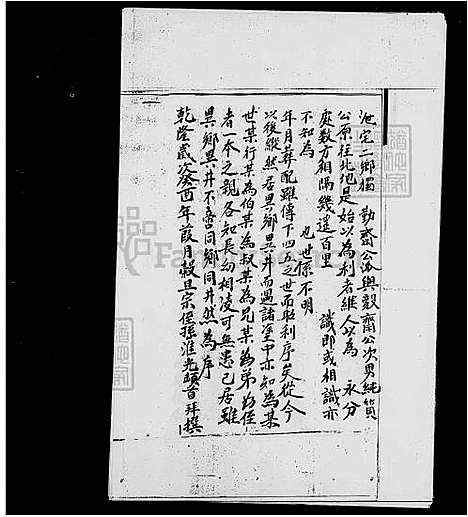 沚宅二鄉獨 勤齋公派與毅齋公次男純質
公原往北地是始以為利者維人以為 永分
處数方相隔幾遥百里 識即或相識亦
不知為 也世係不明
年月葬配雖傳下四五之世而取利序矣從今
以後縱然居異鄉異井而遇諸塗中亦知為某
世某行某為伯某為叔某為兄某為弟為侄
者一本之親各知長幼相凌可無患已居雖
異鄉異井不啻同鄉同井然為序
乾隆歲次癸酉年葭月穀旦宗侄孫淮光頓首拜撰